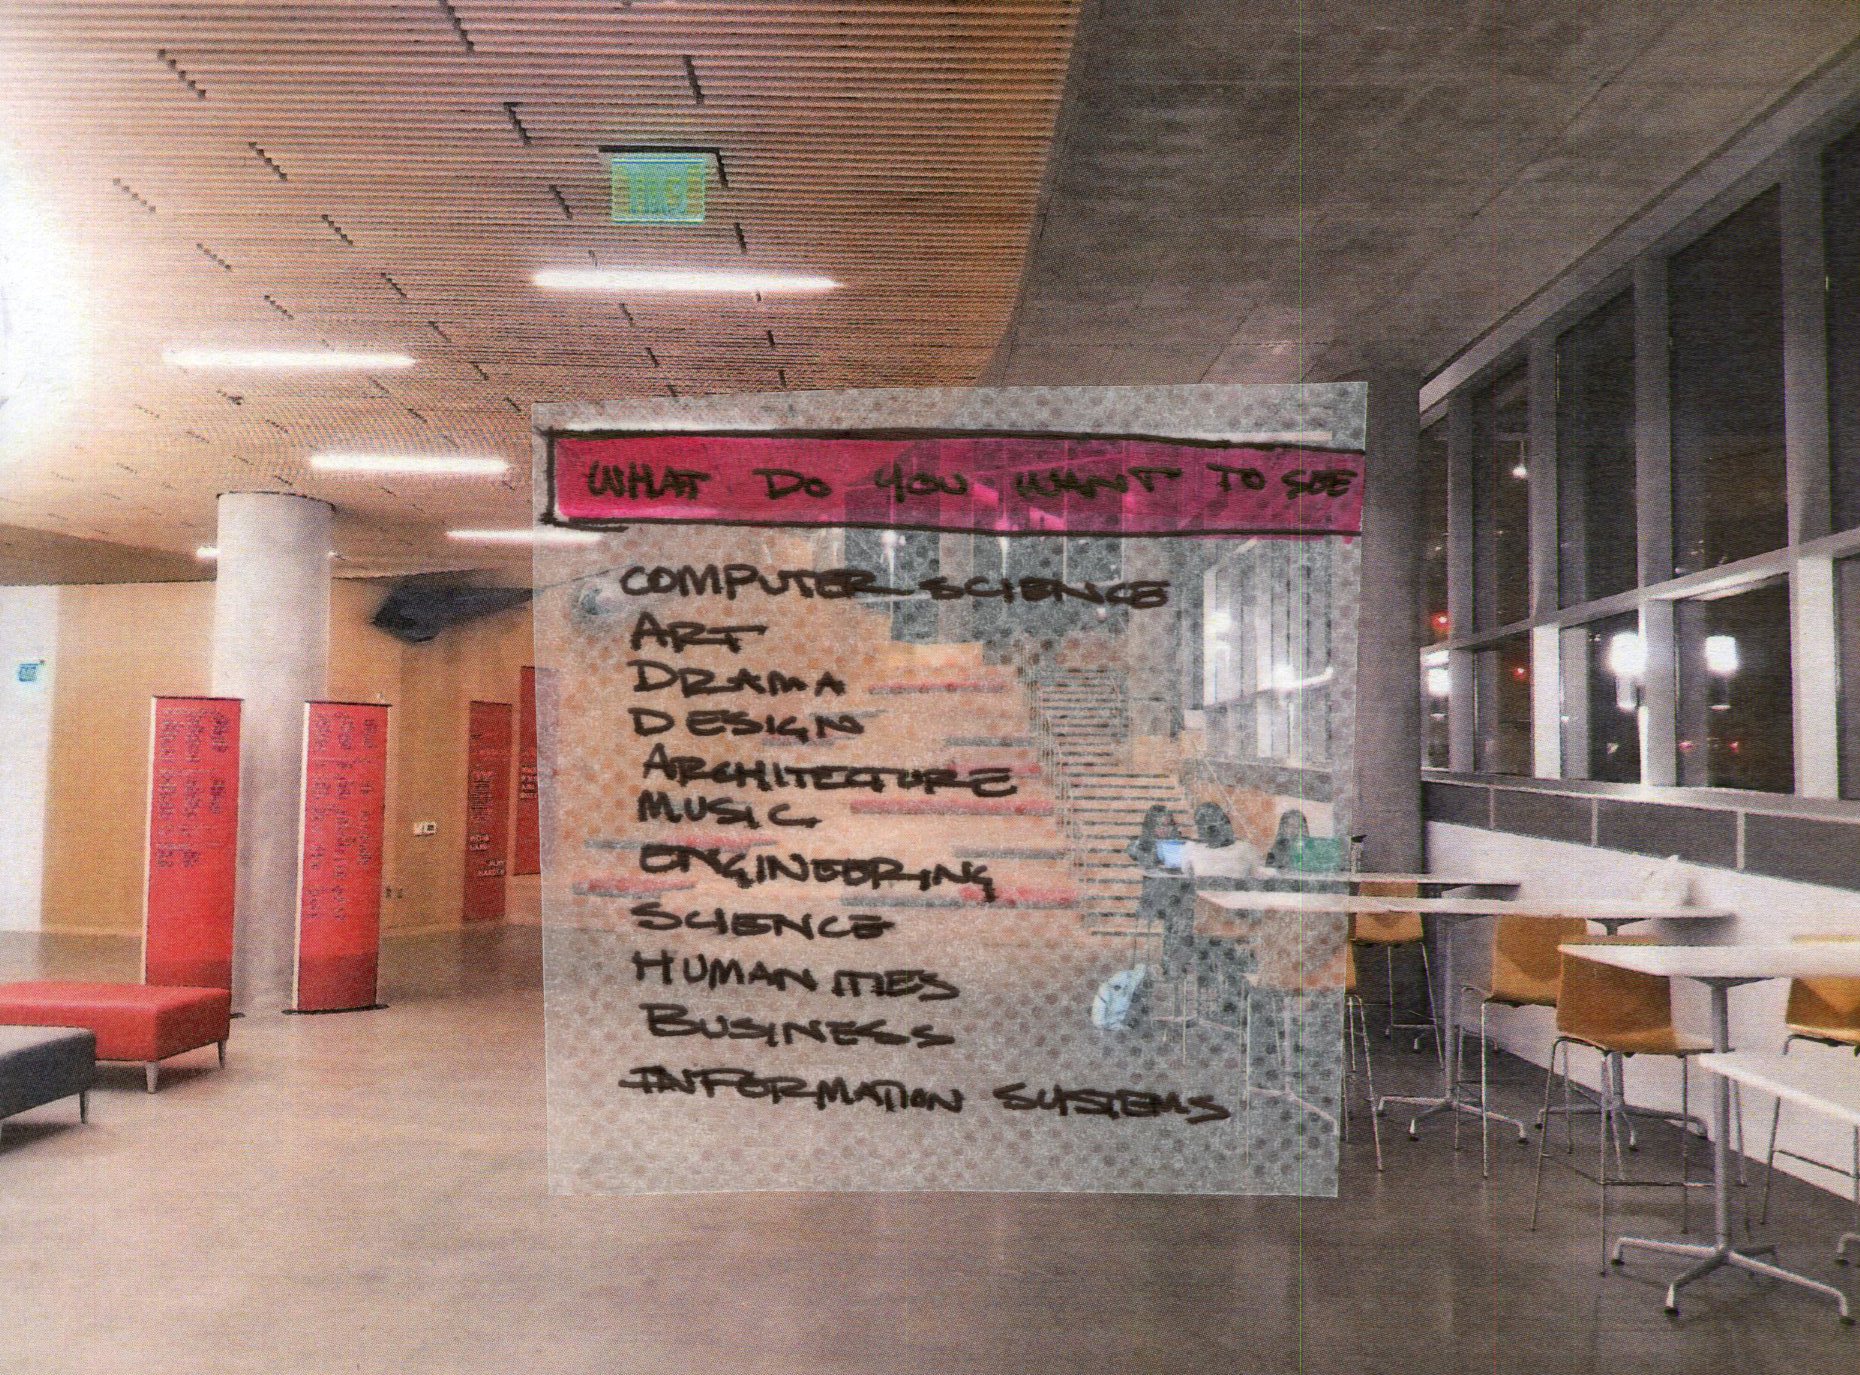 WHAT DO YOU WANT TO SEE
COMPUTER SCIENCE
ART
DRAMA
DESIGN
ARCHITECTURE
MUSIC
ENGINEERING
SCIENCE
HUMANITIES
BUSINESS
INFORMATION SYSTEMS